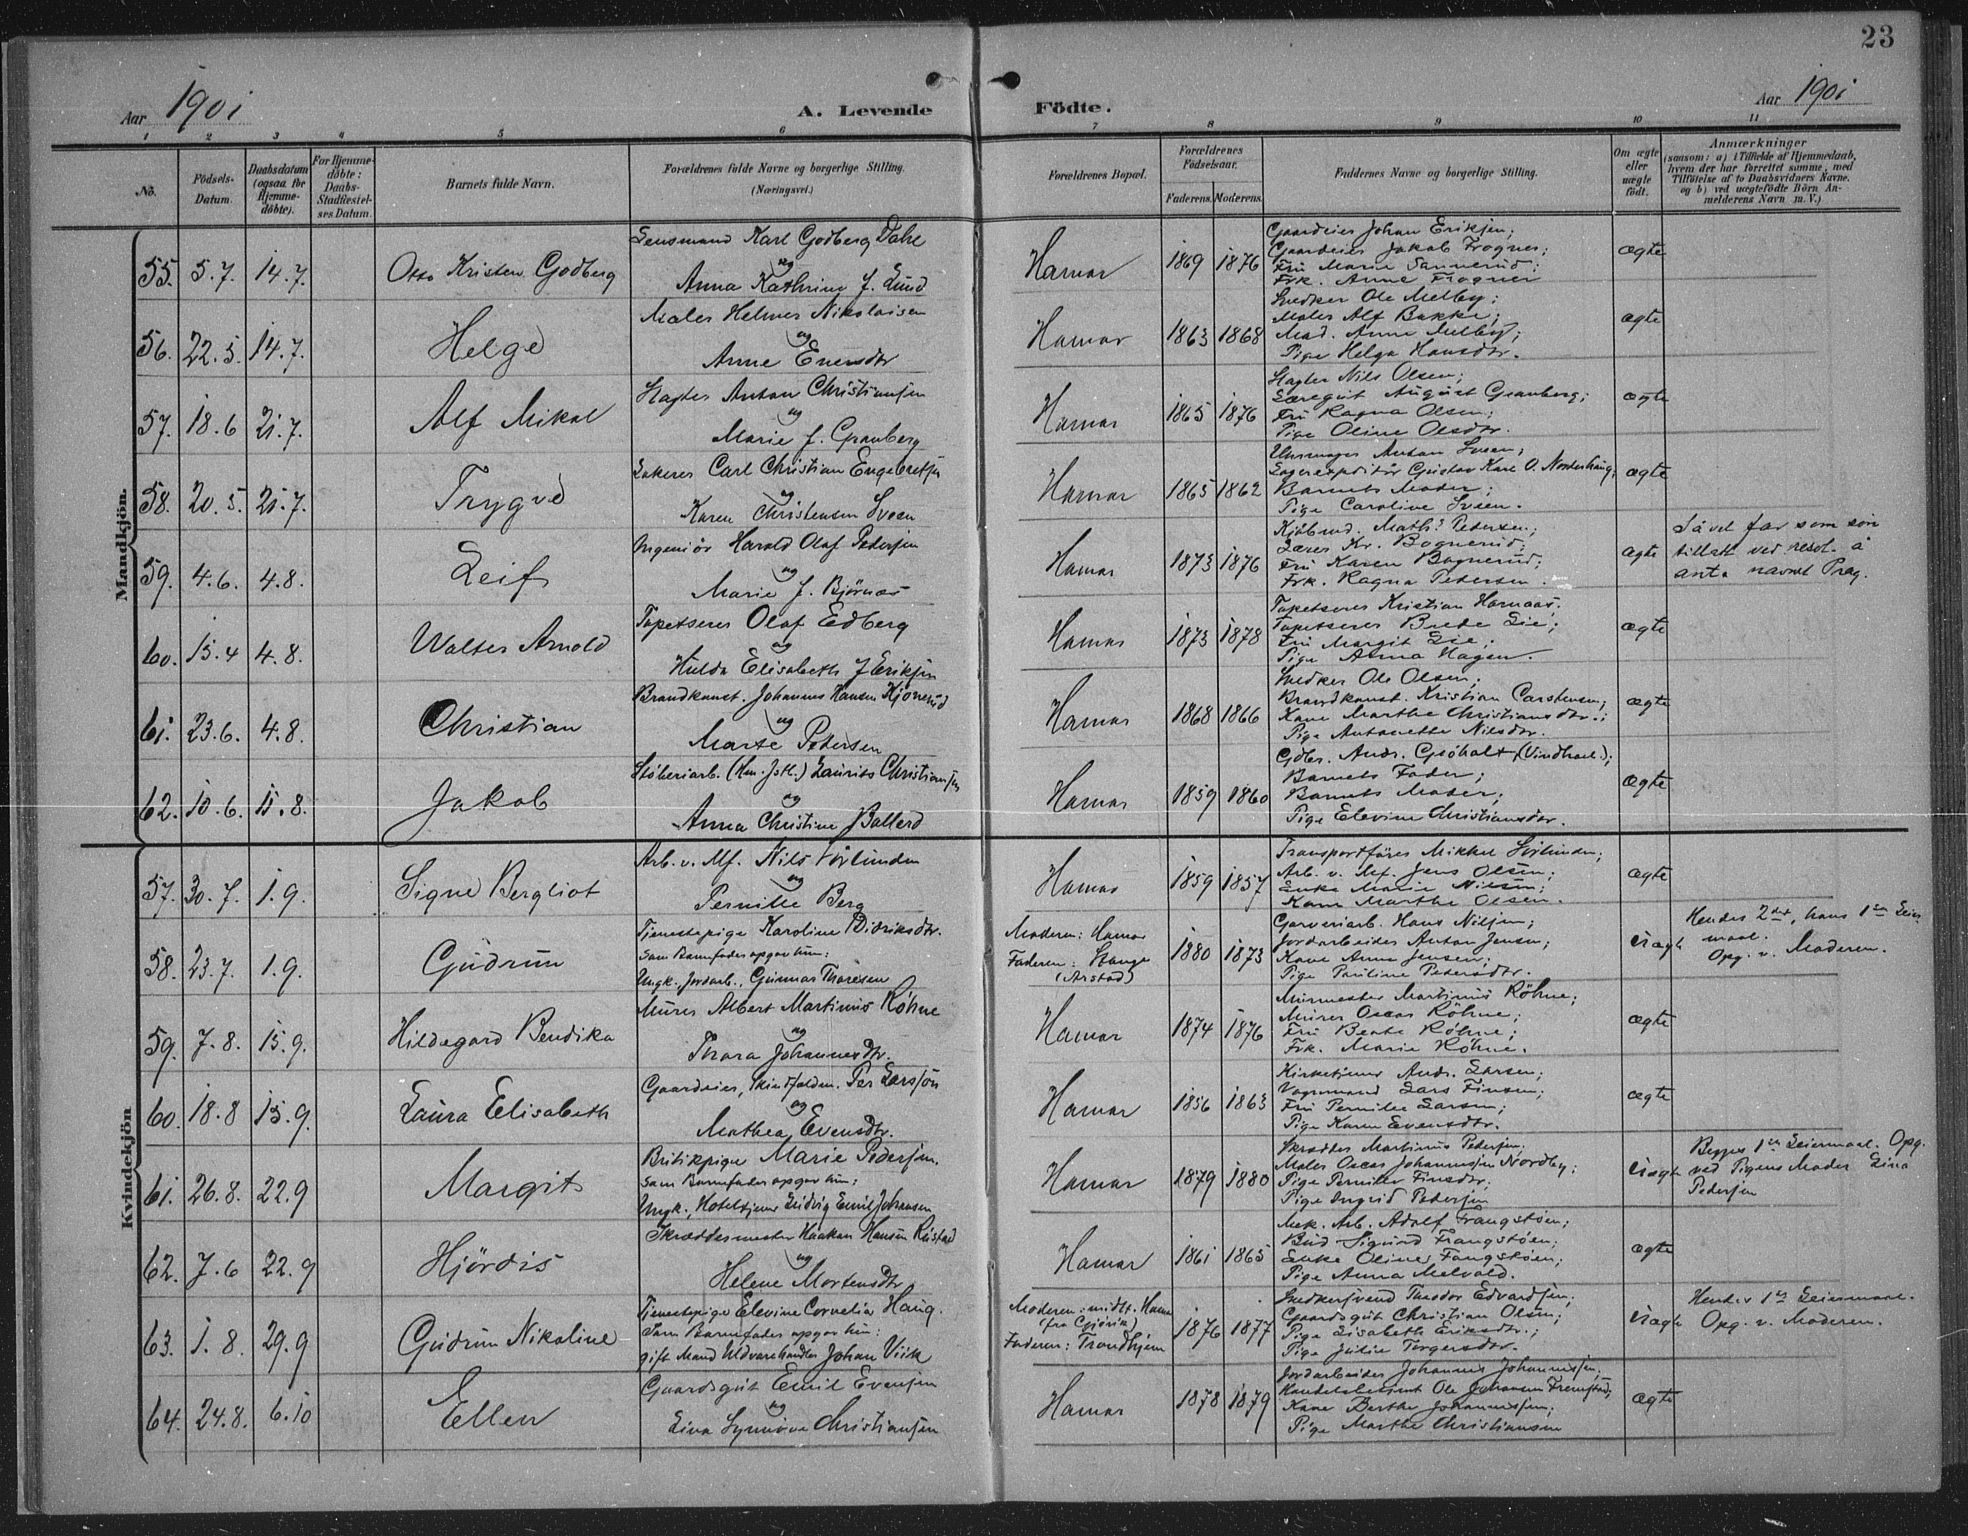 23
Aar 1901 A. Levende Födte. Aar 1901
1 2 3 4 5 6 7 8 9 10 11
No.
Födsels-Datum.
Daabsdatum (ogsaa for Hjemme-döbte).
For Hjemme-döbte: Daabs-Stadfæstel-ses Datum.
Barnets fulde Navn.
Forældrenes fulde Navne og borgerlige Stilling.
(Næringsvei.)
Forældrenes Bopæl.
Forældrenes Födselsaar.
Faderens. Moderens.
Faddernes Navne og borgerlige Stilling.
Om ægte eller uægte födt.
Anmærkninger
(saasom: a) i Tilfælde af Hjemmedaab,
hvem der har forrettet samme, med
Tilföielse af to Daabsvidners Navne,
og b) ved uægtefödte Börn An-
melderens Navn m. V.)
Mandkjön.
55. 5.7. 14.7. Otto Kristen Godberg
Lensmand Karl Godberg Dahl
og
Anna Kathrine J. Lund
Hamar 1869 1876
Gaardeier Johan Eriksen;
Gaardeier Jakob Frogner;
Fru Marie Sannerud;
Frk. Anne Frogner
ægte
56. 22.5. 14.7. Helge
Maler Helmer Nikolaisen
og
Anne Evensdtr
Hamar 1863 1868
Snedker Ole Melby;
Maler Alf Bakke;
Mad. Anne Melby;
Pige Helga Hansdtr.
ægte
57. 18.6 21.7. Alf Mikal
Slagter Anton Christiansen
og
Marie J. Granberg
Hamar 1865 1876
Slagter Nils Olsen;
Læregut August Granberg;
Fru Ragna Olsen;
Pige Oline Olsdtr.
ægte
58. 20.5. 21.7. Trygve
Lakerer Carl Christian Engebretsen
og
Karen Christensen Sveen
Hamar 1865 1862
Uhrmager Anton Sveen;
Lagerexpeditör Gustav Karl O. Nordenhaug;
Barnets Moder;
Pige Caroline Sveen.
ægte
59. 4.6. 4.8. Leif
Ingeniör Harald Olaf Pedersen
og
Marie J. Bjørnæs
Hamar 1873 1876
Kjöbmd. Maths. Pedersen;
Lærer Kr. Bognerud;
Fru Karen Bognerud;
Frk. Ragna Pedersen.
ægte
Såvel far som søn
tillatt ved resol. å
anta navnet Prag.
60. 15.4 4.8. Walter Arnold
Tapetserer Olaf Edberg
og
Hulda Elisabeth J Eriksen
Hamar 1873 1878
Tapetserer Kristian Hornaas;
Tapetserer Brede Lie;
Fru Margit Lie;
Pige Anna Hagen.
ægte
61. 23.6. 4.8. Christian
Brandkonst. Johannes Hansen Kjonerud
og
Marte Pedersen
Hamar 1868 1866
Snedker Ole Olsen;
Brandkonst. Kristian Carstensen;
Kone Marthe Christiansdtr.;
Pige Antonette Nilsdtr.
ægte
62. 10.6. 11.8. Jakob
Støberiarb. (Hm. Jstb.) Laurits Christiansen
og
Anna Christine Ballerd
Hamar 1859 1860
Gdbr. Andr. Gjöholt, (Vindhol.);
Barnets Fader;
Barnets Moder;
Pige Elevine Christiansdtr.
ægte
Kvindekjön
57. 30.7. 1.9. Signe Bergliot
Arb. v. Mf. Nils Sörlunden
og
Pernille Berg
Hamar 1859 1857
Transportförer Mikkel Sörlunden;
Arb. v. Mf. Jens Olsen;
Enke Marie Nilsen;
Kone Marthe Olsen.
ægte
58. 23.7. 1.9. Gudrun
Tjenestepige Karoline Didriksdtr.
som Barnefader opgav hun:
Ungk., Jordarb., Gunnar Thoresen
Moderen: Hamar
Faderen: Stange
(Arstad)
1880 1873
Garveriarb. Hans Nilsen;
Jordarbeider Anton Jensen;
Kone Anna Jensen;
Pige Pauline Pedersdtr.
uægte
Hendes 2det, hans 1ste Leier
maal.
Opg. v. Moderen.
59. 7.8. 15.9. Hildegard Bendika
Murer Albert Martinius Röhne
og
Thora Johannesdtr.
Hamar 1874 1876
Murmester Martinius Röhne;
Murer Oscar Röhne;
Fru Beate Röhne;
Frk. Marie Röhne.
ægte
60. 18.8 15.9. Laura Elisabeth
Gaardeier, Skindfælden. Per Larsen
og
Mathea Evensdtr.
Hamar 1856 1863
Kirketjener Andr. Larsen;
Vognmand Lars Finsen;
Fru Pernille Larsen;
Pige Karen Evensdtr.
ægte
61. 26.8. 22.9 Margit
Butikpige Marie Pedersen.
som Barnefader opgav hun:
Ungk., Hoteltjener Ludvig Emil Johansen
Hamar 1879 1880
Skrædder Martinus Pedersen;
Maler Oscar Johannesen Nordby;
Pige Pernille Finsdtr;
Pige Ingrid Pedersen
uægte
Begges 1ste Leiermaal. Opg.
ved Pigens Moder Lina
Pedersen
62. 7.6 22.9 Hjördis
Skræddermester Haakon Hansen Rustad
og
Helene Mortensdtr
Hamar 1861 1865
Mek. Arb. Adolf Frangstöen;
Bud Sigurd Frangstöen;
Enke Oline Fangstöen;
Pige Anna Melvold.
ægte
63. 1.8. 29.9 Gudrun Nikoline
Tjenestepige Elevine Cornelia Haug.
Som Barnefader opgav hun:
gift Mand Uldvarehandler Johan Viik
Moderen: midlt. Hamar
(fra Gjövik)
Faderen: Trondhjem
1876 1877
Snedkersvend Theodor Edvardsen;
Gaardsgut Christian Olsen;
Pige Lisabeth Eriksdtr.;
Pige Julie Torgersdtr.
uægte
Hendes 1ste Leiermaal.
Opg. v. Moderen.
64. 24.8. 6.10 Ellen
Gaardsgut Emil Evensen
og
Lina Synnöve Christiansen
Hamar 1878 1879
Jordarbeider Johannes Johannesen;
Handelsbetjent Ole Johansen Fremstad;
Kone Berthe Johannesen;
Pige Marthe Christiansen
ægte